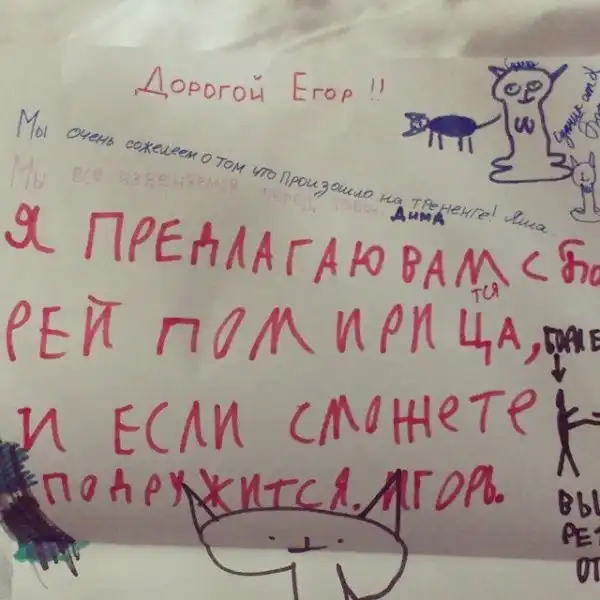 Дорогой Егор !!
Мы очень сожелеем о том что произошло на трененге! Яша.
Мы все извеняемся перед тобой. Дима
Я ПРЕДЛАГАЮ ВАМ С БО
РЕЙ ПОМИРИЦА,
ТСЯ
И ЕСЛИ СМОЖЕТЕ
ПОДРУЖИТСЯ. ИГОРЬ.
ВЫ
РЕ
ОТ